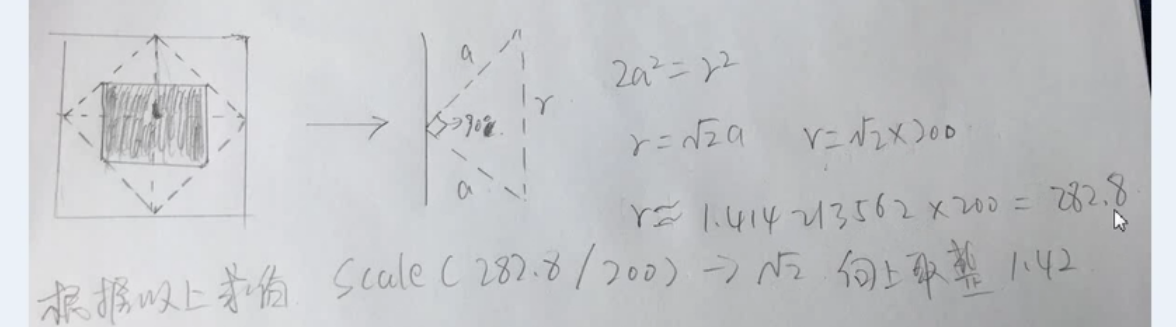 a
→90°
r
a
2a²=r²
r=√2a r=√2×200
r≈1.414213562×200=282.8
根据以上求值 Scale(282.8/200)→√2 向上取整 1.42